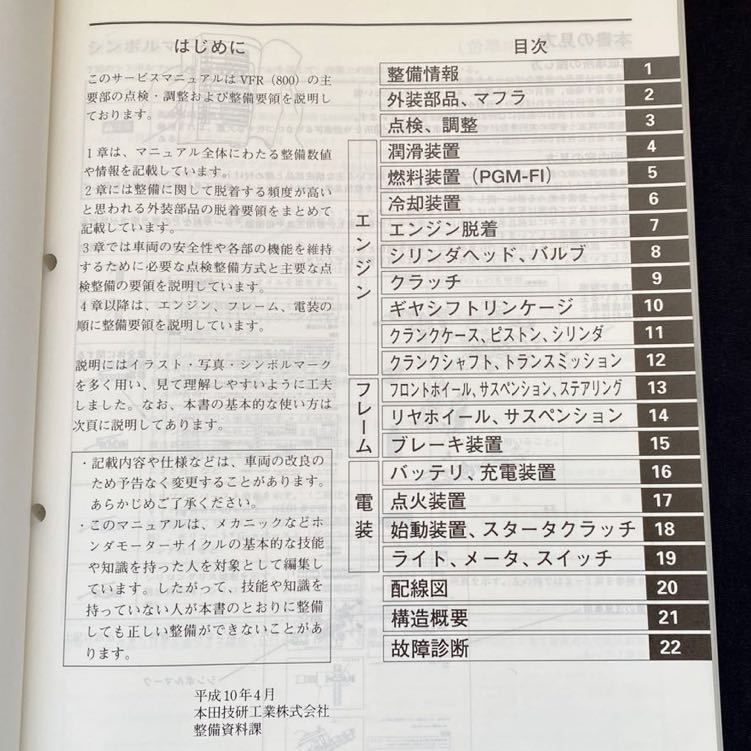 はじめに
このサービスマニュアルは VFR (800) の主
要部の点検・調整および整備要領を説明し
ております。
1章は、マニュアル全体にわたる整備数値
や情報を記載しています。
2章には整備に関して脱着する頻度が高い
と思われる外装部品の脱着要領をまとめて
記載しています。
3章では車両の安全性や各部の機能を維持
するために必要な点検整備方式と主要な点
検整備の要領を説明しています。
4章以降は、エンジン、フレーム、電装の
順に整備要領を説明しています。
説明にはイラスト・写真・シンボルマーク
を多く用い、見て理解しやすいように工夫
しました。なお、本書の基本的な使い方は
次頁に説明してあります。
・記載内容や仕様などは、車両の改良の
ため予告なく変更することがあります。
あらかじめご了承ください。
・このマニュアルは、メカニックなどホ
ンダモーターサイクルの基本的な技能
や知識を持った人を対象として編集し
ています。したがって、技能や知識を
持っていない人が本書のとおりに整備
しても正しい整備ができないことがあ
ります。
平成10年4月
本田技研工業株式会社
整備資料課
目次
整備情報 1
外装部品、マフラ 2
点検、調整 3
エンジン
潤滑装置 4
燃料装置 (PGM-FI) 5
冷却装置 6
エンジン脱着 7
シリンダヘッド、バルブ 8
クラッチ 9
ギヤシフトリンケージ 10
クランクケース、ピストン、シリンダ 11
クランクシャフト、トランスミッション 12
フレーム
フロントホイール、サスペンション、ステアリング 13
リヤホイール、サスペンション 14
ブレーキ装置 15
電装
バッテリ、充電装置 16
点火装置 17
始動装置、スタータクラッチ 18
ライト、メータ、スイッチ 19
配線図 20
構造概要 21
故障診断 22